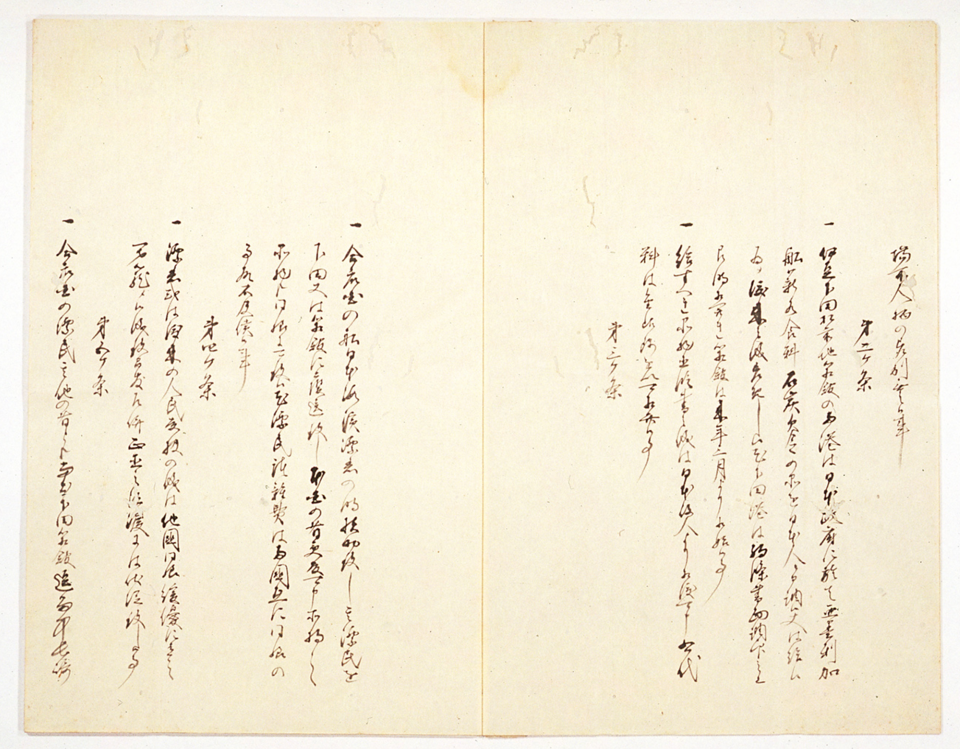 場所人柄の差別無之事
第二ヶ条
一 伊豆下田松前地箱館の両港は日本政府に於て亜墨利加
船薪水食料石炭欠乏の品を日本人にて調候丈は給し候
為メ渡来之儀差免し候尤下田港は約条書面調印之上
即時相開き箱館は来年三月より相始候事
一 給すべき品物直段書之儀は日本役人より相渡可申右代
料は金銀銭を以可相弁候事
第三ヶ条
一 合衆国の船日本海浜漂着の時扶助致し其漂民を
下田又は箱館に護送致し本国の者受取可申所持の
品物も同様に可致候尤漂民諸雑費は両国互に同様の
事故不及償候事
第四ヶ条
一 漂着或は渡来の人民取扱の儀は他国同様緩優に有之
閉籠メ候儀致間敷乍併正直の法度には伏従致し候事
第五ヶ条
一 合衆国の漂民其他の者とも当分下田箱館逗留中長崎